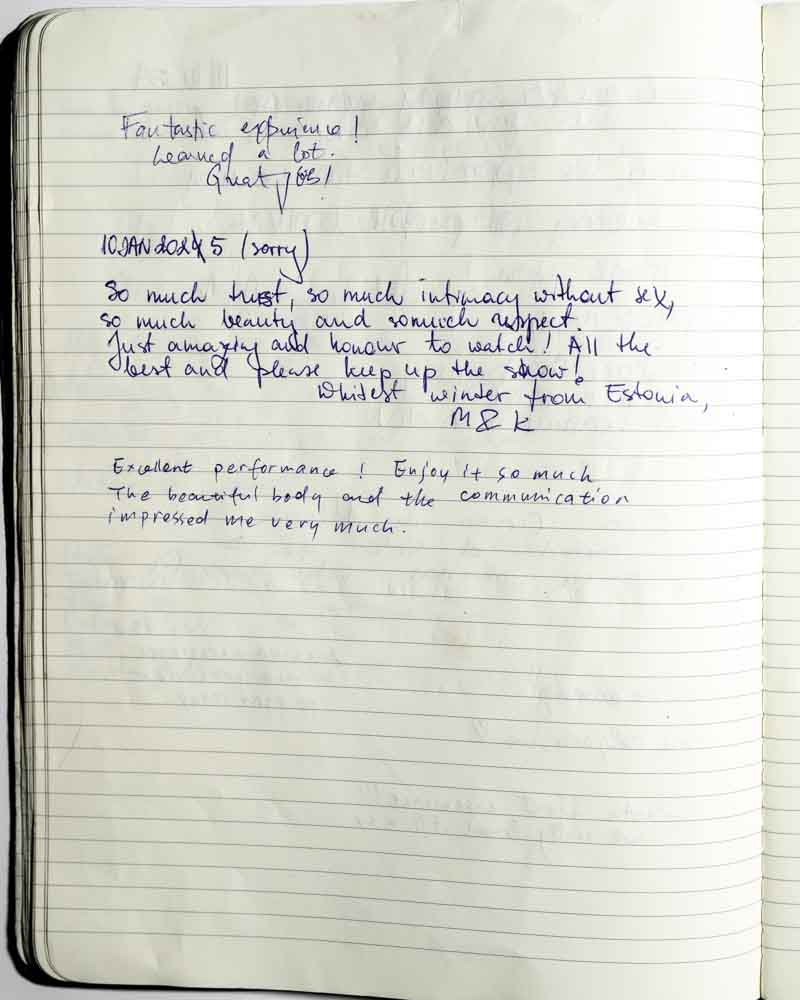 Fantastic experience!
Learned a lot.
Great job!
10JAN2024 5 (sorry)
So much trust, so much intimacy without sex,
so much beauty and somuch respect.
Just amazing and honour to watch! All the
best and please keep up the show!
Whitest winter from Estonia,
M & K
Excellent performance! Enjoy it so much
The beautiful body and the communication
impressed me very much.